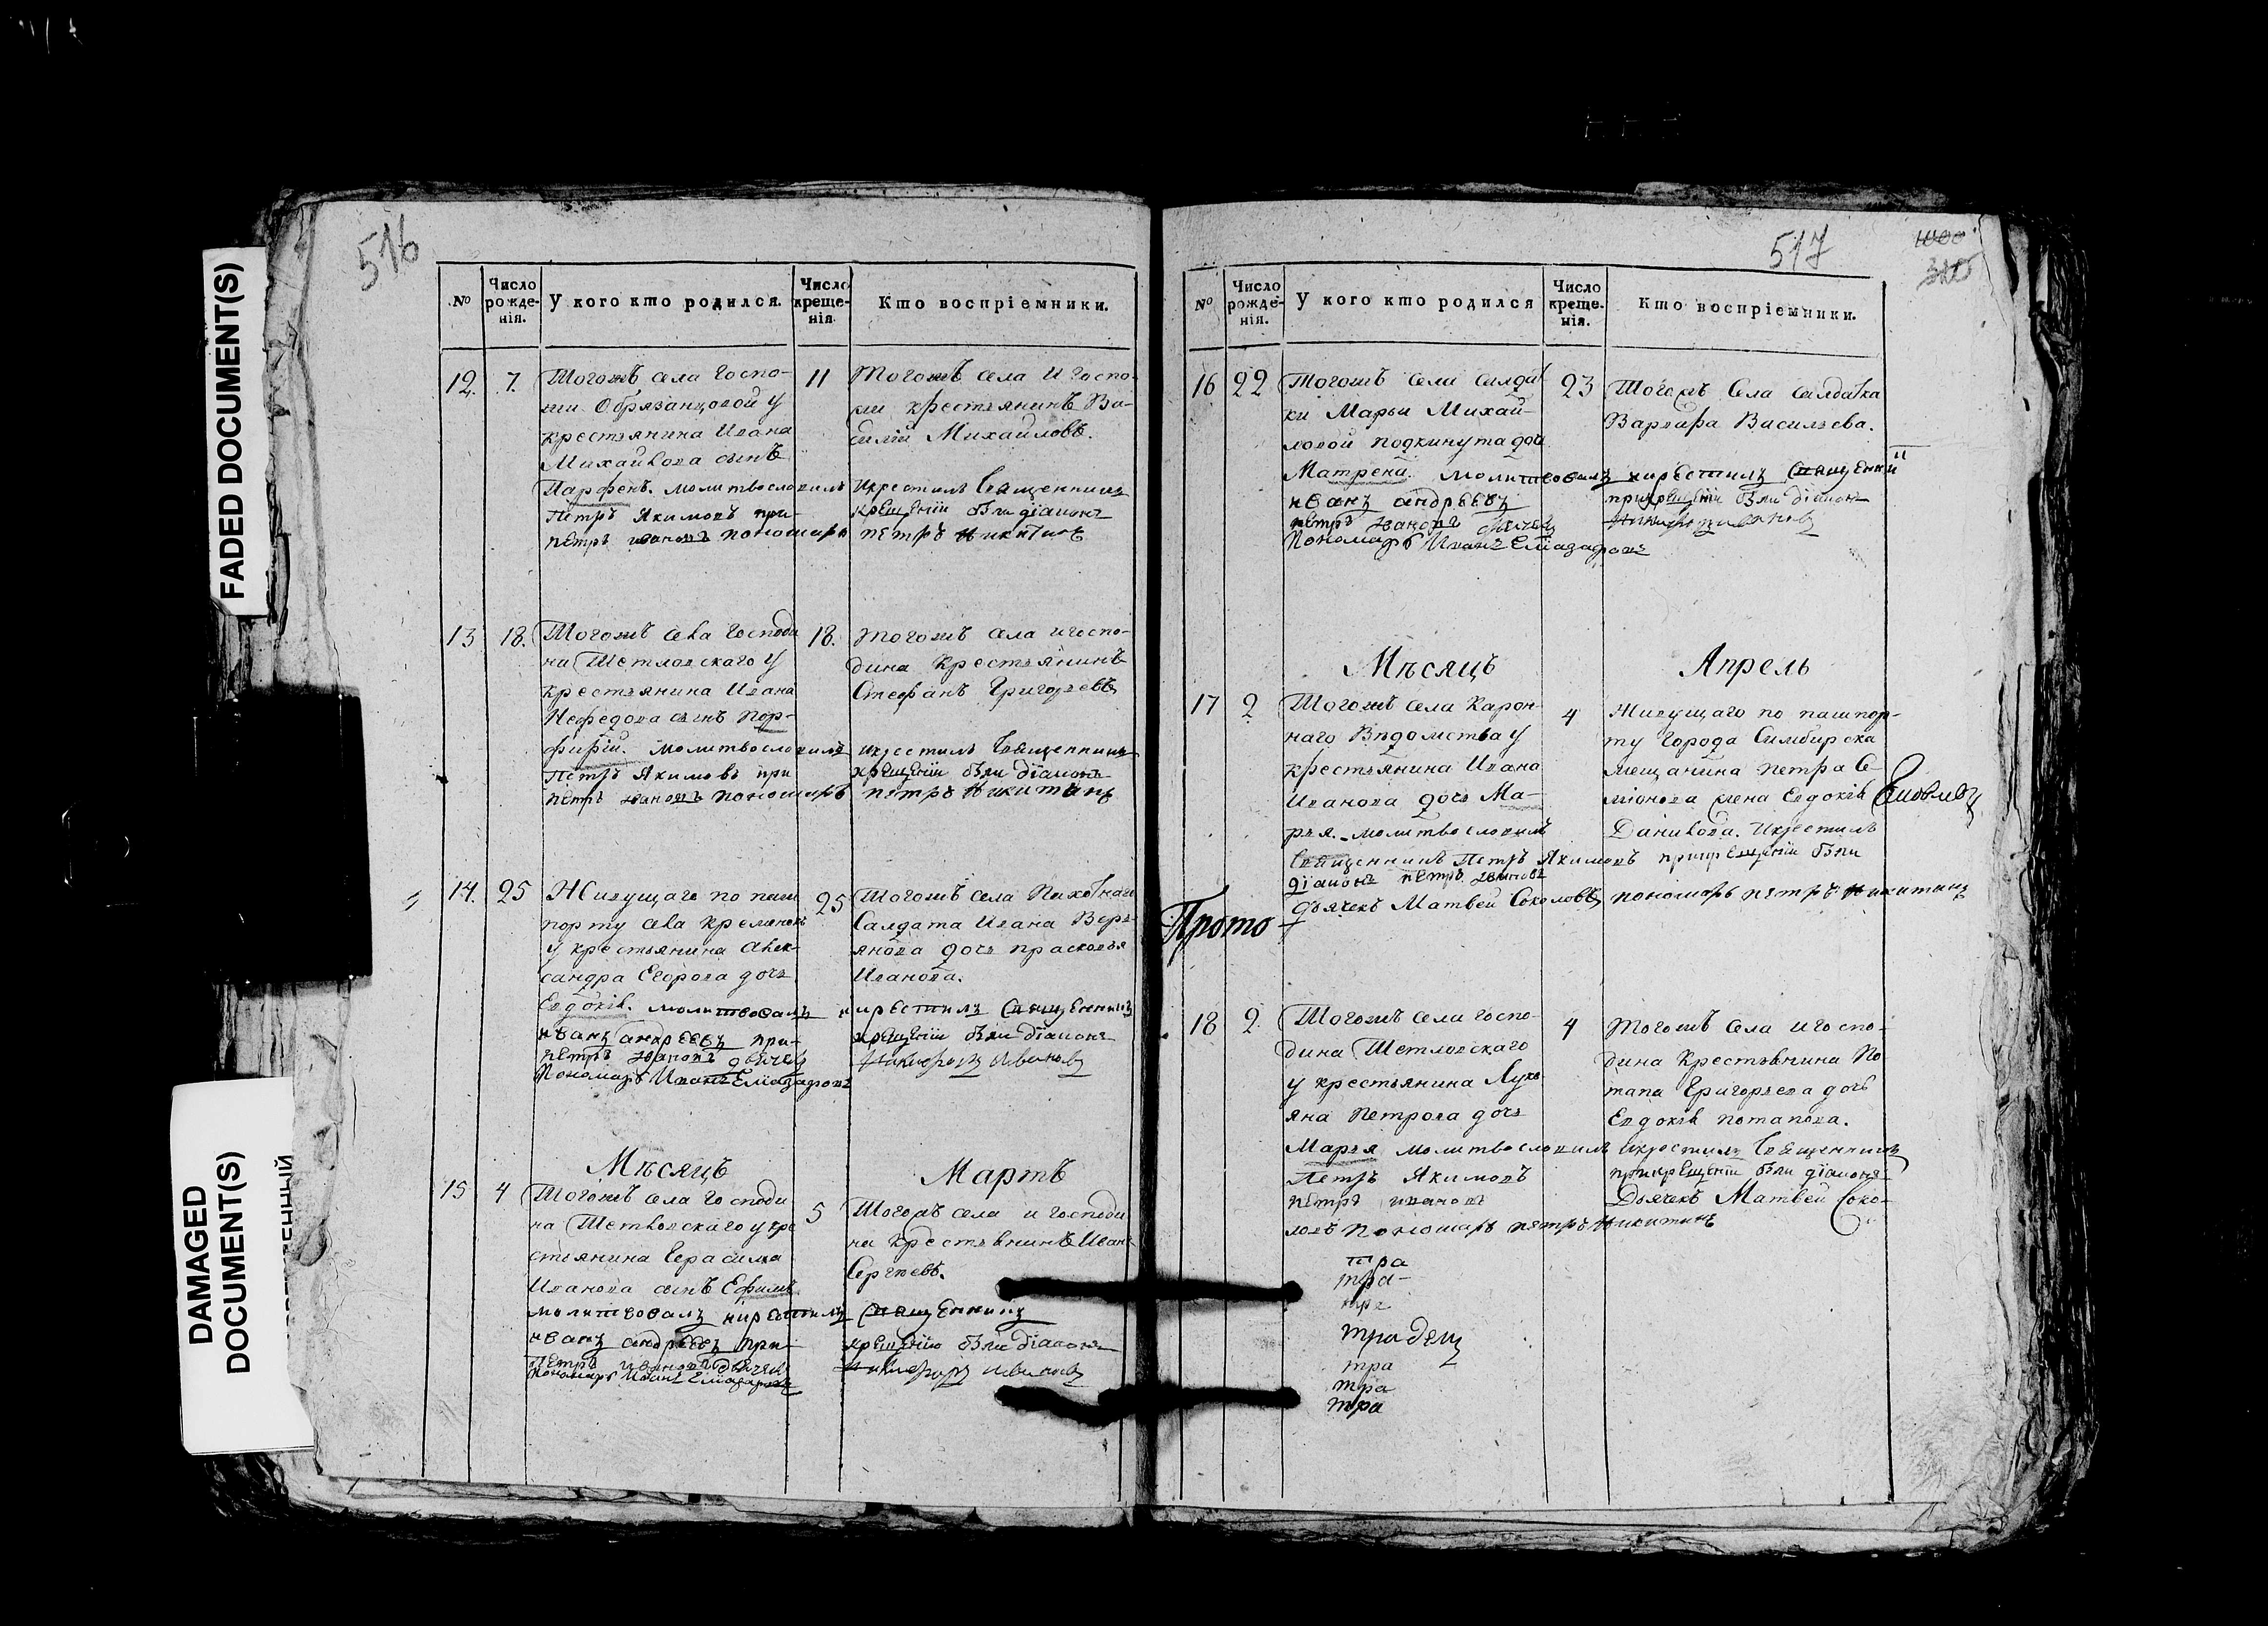 FADED DOCUMENT(S)
DAMAGED
DOCUMENT(S)
516
№
Число рожде-нія.
У кого кто родился.
Число креще-нія
Кто воспріемники.
12. 7. Тогожъ села Госпо-
жи Обрязанцовой у
крестьянина Ивана
Михайлова сынъ
Парфенъ. молитвословилъ
Петръ Якимовъ при-
петръ ивановъ пономарь
11 Тогожъ села и Госпо-
жи крестьянинъ Ва-
силій Михайловъ.
икрестилъ Священникъ
крещеніи были діаконъ
петръ никитинъ
13 18. Тогожъ села Господи
на Шетловскаго у
крестьянина Ивана
Нефедова сынъ Пор-
фирій. молитвословилъ
Петръ Якимовъ при
петръ ивановъ пономарь
18. Тогожъ села игоспо-
дина крестьянинъ
Стефанъ Григорьевъ
икрестилъ Священникъ
крещеніи были діаконъ
петръ никитинъ
14. 25 Живущаго по паш
порту села Кременокъ
у крестьянина Алек-
сандра Егорова дочь
Евдокія. молитвовалъ
иванъ андреевъ при-
петръ ивановъ дьячекъ
Пономарь Иванъ
25 Тогожъ села Пахотнаго
Салдата Ивана Верь-
янова дочь прасковья
Иванова.
икрестилъ Священникъ
крещеніи были діаконъ
Мѣсяцъ
Мартъ
15 4 Тогожъ села Господи
на Шетловскаго у кре
стьянина Герасима
Иванова сынъ Ефимъ
молитвовалъ икрестилъ Священникъ
иванъ андреевъ при-
петръ ивановъ дьячекъ
Пономарь Иванъ
5 Тогожъ села и господи
на крестьянинъ Иванъ
Сергѣевъ.
крещеніи были діаконъ
517
№
Число рожде-нія.
У кого кто родился
Число креще-нія.
Кто воспріемники.
16 22 Тогожъ села салдат
ки Марьи Михай-
ловой подкинута дочь
Матрена. молитвовалъ
иванъ андреевъ
петръ ивановъ дьячекъ
Пономарь Иванъ
23 Тогожъ села салдатка
Варвара Васильева.
икрестилъ Священникъ
прикрещеніи были діаконъ
Мѣсяцъ
Апрель
17 2 Тогожъ села Карон-
наго Вѣдомства у
крестьянина Ивана
Иванова дочь Ма-
рья. молитвословилъ
Священникъ Петръ Якимовъ прикрещеніи были
діаконъ петръ ивановъ
дьячекъ Матвей Соколовъ пономарь петръ никитинъ
4 Живущаго по пашпор-
ту города Симбирска
мещанина петра Се-
міонова жена Евдокія
Данилова. икрестилъ
Прото-
18 2 Тогожъ села госпо-
дина Шетловскаго
у крестьянина Лукь
яна Петрова дочь
Марья молитвословилъ
Петръ Якимовъ
петръ ивановъ
ловъ пономарь петръ никитинъ
4 Тогожъ села игоспо-
дина крестьянина По
тапа Григорьева дочь
Евдокія потапова.
икрестилъ Священникъ
прикрещеніи были діаконъ
Дьячекъ Матвей Соко-
тра
тра-
тра
тра
тра
тра